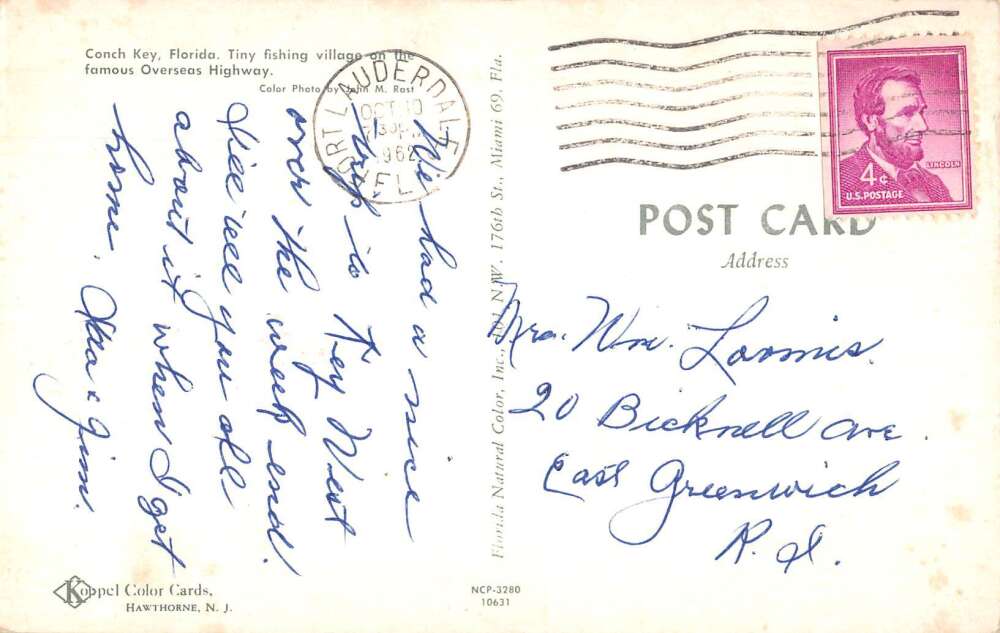 Conch Key, Florida. Tiny fishing village on the
famous Overseas Highway.
Color Photo by John M. Rast
We had a nice
trip to Key West
over the week end.
I'ee tell you all
about it when I get
home.
& Jim.
Koppel Color Cards,
HAWTHORNE, N. J.
Florida Natural Color, Inc., 101 N.W. 176th St., Miami 69, Fla.
NCP-3280
10631
FORT LAUDERDALE
OCT 10
1962
FLA
4¢
LINCOLN
U.S. POSTAGE
POST CARD
Address
Mrs. Wm. Loomis.
20 Bicknell Ave.
East Greenwich
R. I.